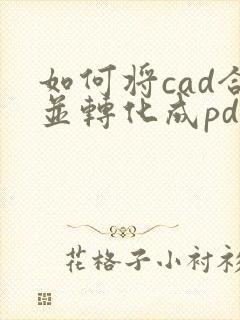 如何将cad合
並轉化成pd
花格子小衬衫